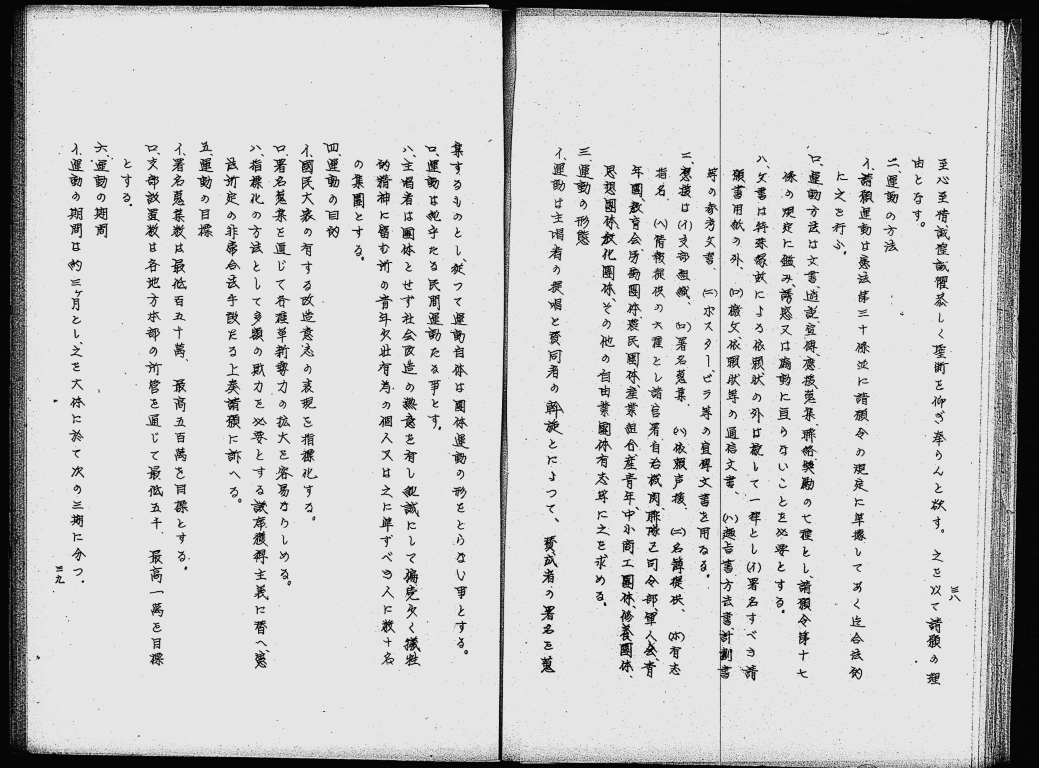 至心至情誠惶誠懼恭しく聖断を仰ぎ奉らんと欲す。之を以て請願の理
由となす。
二、運動の方法
イ、請願運動は憲法第三十條並に請願令の規定に準據してあく迄合法的
に之を行ふ。
ロ、運動方法は文書、遊説宣傳應援、蒐集聯絡奬勵の七種とし、請願令第十七
條の規定に鑑み、誘惑又は煽動に亘らないことを必要とする。
ハ、文書は特殊懇請による依頼状の外は赦して一種とし(イ)署名すべき請
願書用紙の外、(ロ)檄文依頼状等の通信文書、(ハ)趣旨書方法書、計劃書
等の参考文書、(ニ)ポスタービラ等の宣傳文書を用ゐる。
ニ、應援は(イ)支部組織、(ロ)署名蒐集、(ハ)依頼声援、(ニ)名簿提供、(ホ)有志
指名、(ヘ)情報提供の六種とし諸官署自治機関聯隊区司令部軍人会青
年團教育会労働團体農民團体産業組合産青年中小商工團体、修養團体、
思想團体文化團体、その他の自由業團体有志等に之を求める。
三、運動の形態
イ、運動は主唱者の提唱と賛同者の斡旋とによつて、賛成者の署名を蒐
三八
集するものとし、従つて運動自体は團体運動の形をとらない事とする。
ロ、運動は純乎たる民間運動たる事とす。
ハ、主唱者は團体とせず社会改造の熱意を有し純誠にして偏見なく犠牲
的精神に富む所の青年又壮有為の個人又は之に準ずべき人に数十名
の集團とする。
四 運動の目的
イ、國民大衆の有する改造意志の表現を指標化する。
ロ、署名蒐集を通じて各種革新勢力の拡大を容易ならしめる。
ハ、指標化の方法として多額の歳力を必要とする議席獲得主義に替へ、憲
法所定の非常合法手段たる上奏請願に訴へる。
五 運動の目標
イ、署名蒐集数は最低百五十萬、最高五百萬を目標とする。
ロ、支部設置数は各地方本部の所管を通じて最低五千、最高一萬を目標
とする。
六、運動の期間
イ、運動の期間は約三ヶ月とし、之を大体に於て次の三期に分つ。
三九